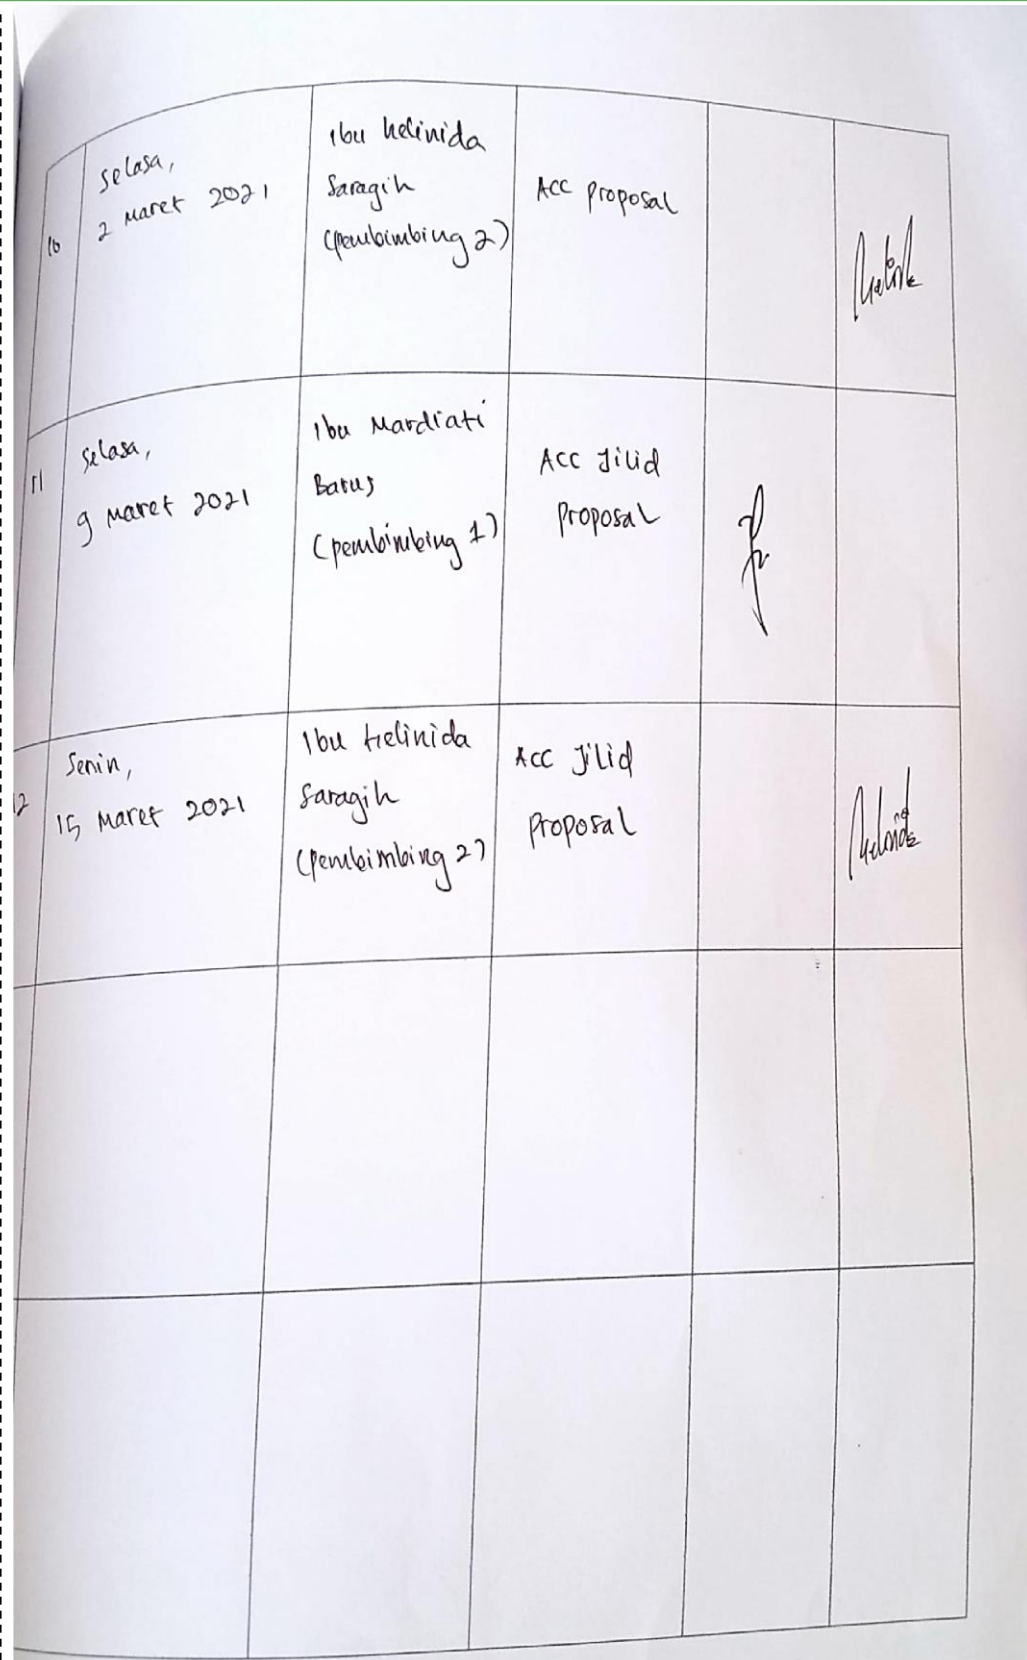 10
Selasa,
2 Maret 2021
Ibu Helinida
Saragih
(Pembimbing 2)
ACC Proposal
11
Selasa,
9 Maret 2021
Ibu Mardiati
Barus
(pembimbing 1)
ACC Jilid
Proposal
12
Senin,
15 Maret 2021
Ibu Helinida
Saragih
(Pembimbing 2)
ACC Jilid
Proposal